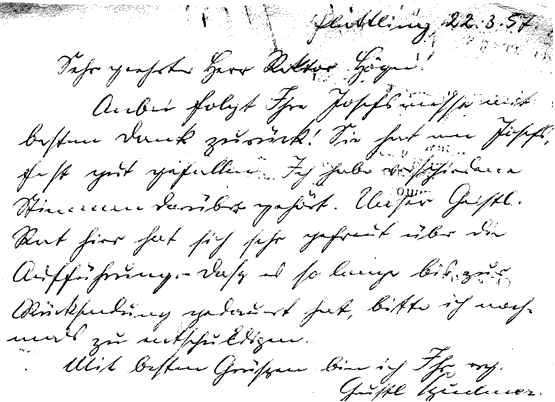 Plattling, 22.3.57
Sehr geehrter Herr Rektor Högn!
Anbei folgt Ihre Josefsmesse mit
bestem Dank zurück! Sie hat am Josefs-
fest gut gefallen. Ich habe verschiedene
Stimmen darüber gehört. Unser Geistl.
Rat hier hat sich sehr gefreut über die
Aufführung. - Dass es so lange bis zur
Rücksendung gedauert hat, bitte ich noch-
mals zu entschuldigen.
Mit besten Grüssen bin ich Ihr erg.
Gustl